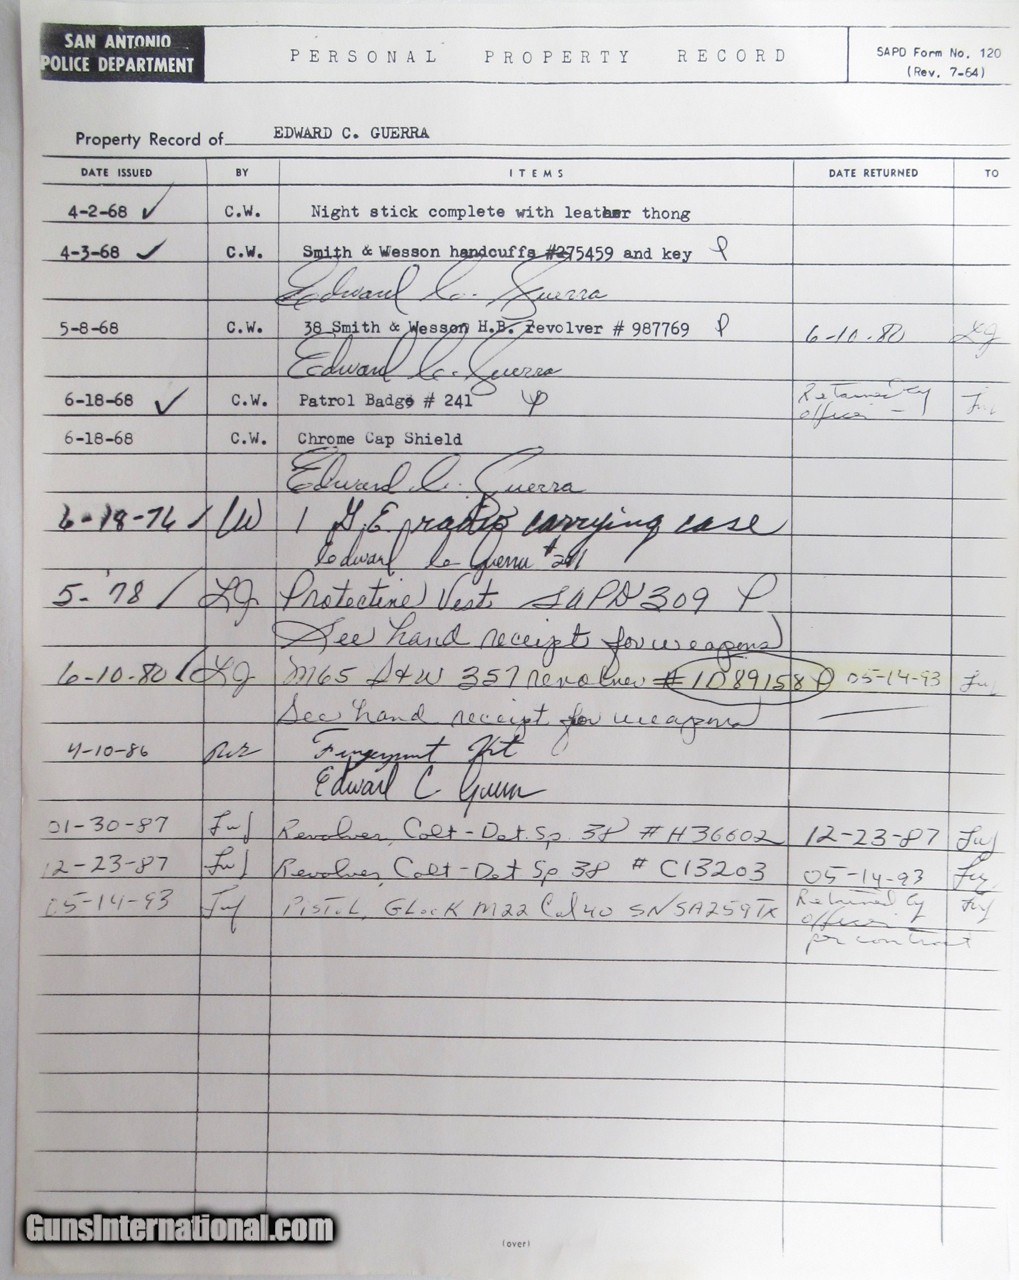 SAN ANTONIO
POLICE DEPARTMENT
PERSONAL PROPERTY RECORD
SAPD Form No. 120
(Rev. 7-64)
Property Record of EDWARD C. GUERRA
DATE ISSUED BY ITEMS DATE RETURNED TO
4-2-68 ✓ C.W. Night stick complete with leather thong
4-3-68 ✓ C.W. Smith & Wesson handcuffs #275459 and key
Edward C. Guerra
5-8-68 C.W. 38 Smith & Wesson H.B. revolver # 987769 6-10-80 LG
Edward C. Guerra
6-18-68 ✓ C.W. Patrol Badge # 241 Retained by
officer -
6-18-68 C.W. Chrome Cap Shield
Edward C. Guerra
6-18-76 / CW 1 G.E. radio carrying case
Edward C Guerra #241
5-'78 / LG Protective Vest SAPD 309
See hand receipt for weapons
6-10-80 / LG M65 S&W 357 revolver #1D89158 05-14-93
See hand receipt for weapons
4-10-86 Fingerprint Kit
Edward C Guerra
01-30-87 Revolver, Colt-Det. Sp. 38 # H36602 12-23-87
12-23-87 Revolver, Colt-Det Sp 38 # C13203 05-14-93
05-14-93 PISTOL, GLOCK M22 Cal 40 SN SA259TK Retained by
officer
per contract
(over)
GunsInternational.com